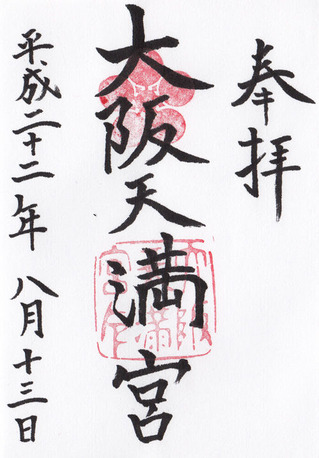 奉拝
大阪天満宮
平成二十二年 八月十三日